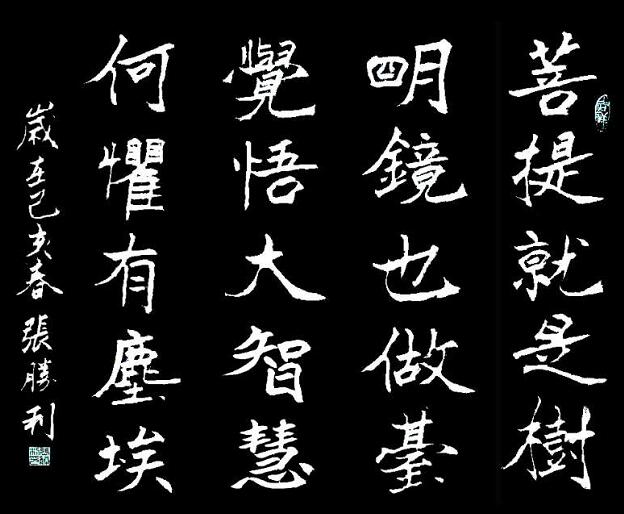 菩提就是樹
明鏡也做臺
覺悟大智慧
何懼有塵埃
歲在己亥春 張勝利